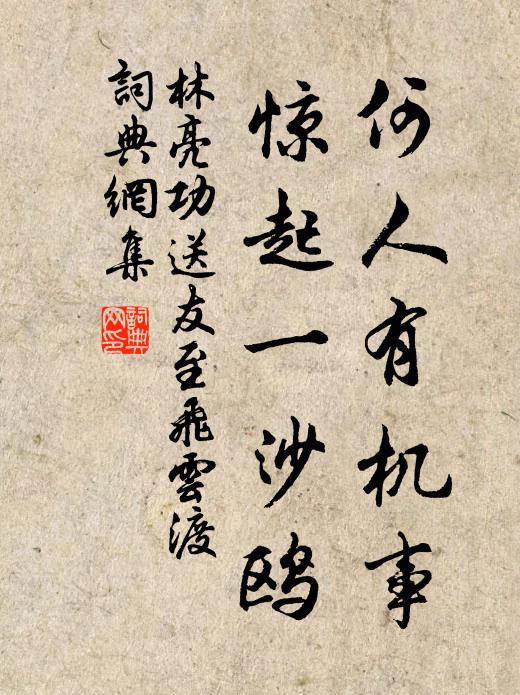 何人有机事
惊起一沙鸥
林亮功送友至飛雲渡
詞典網集
詞典网印